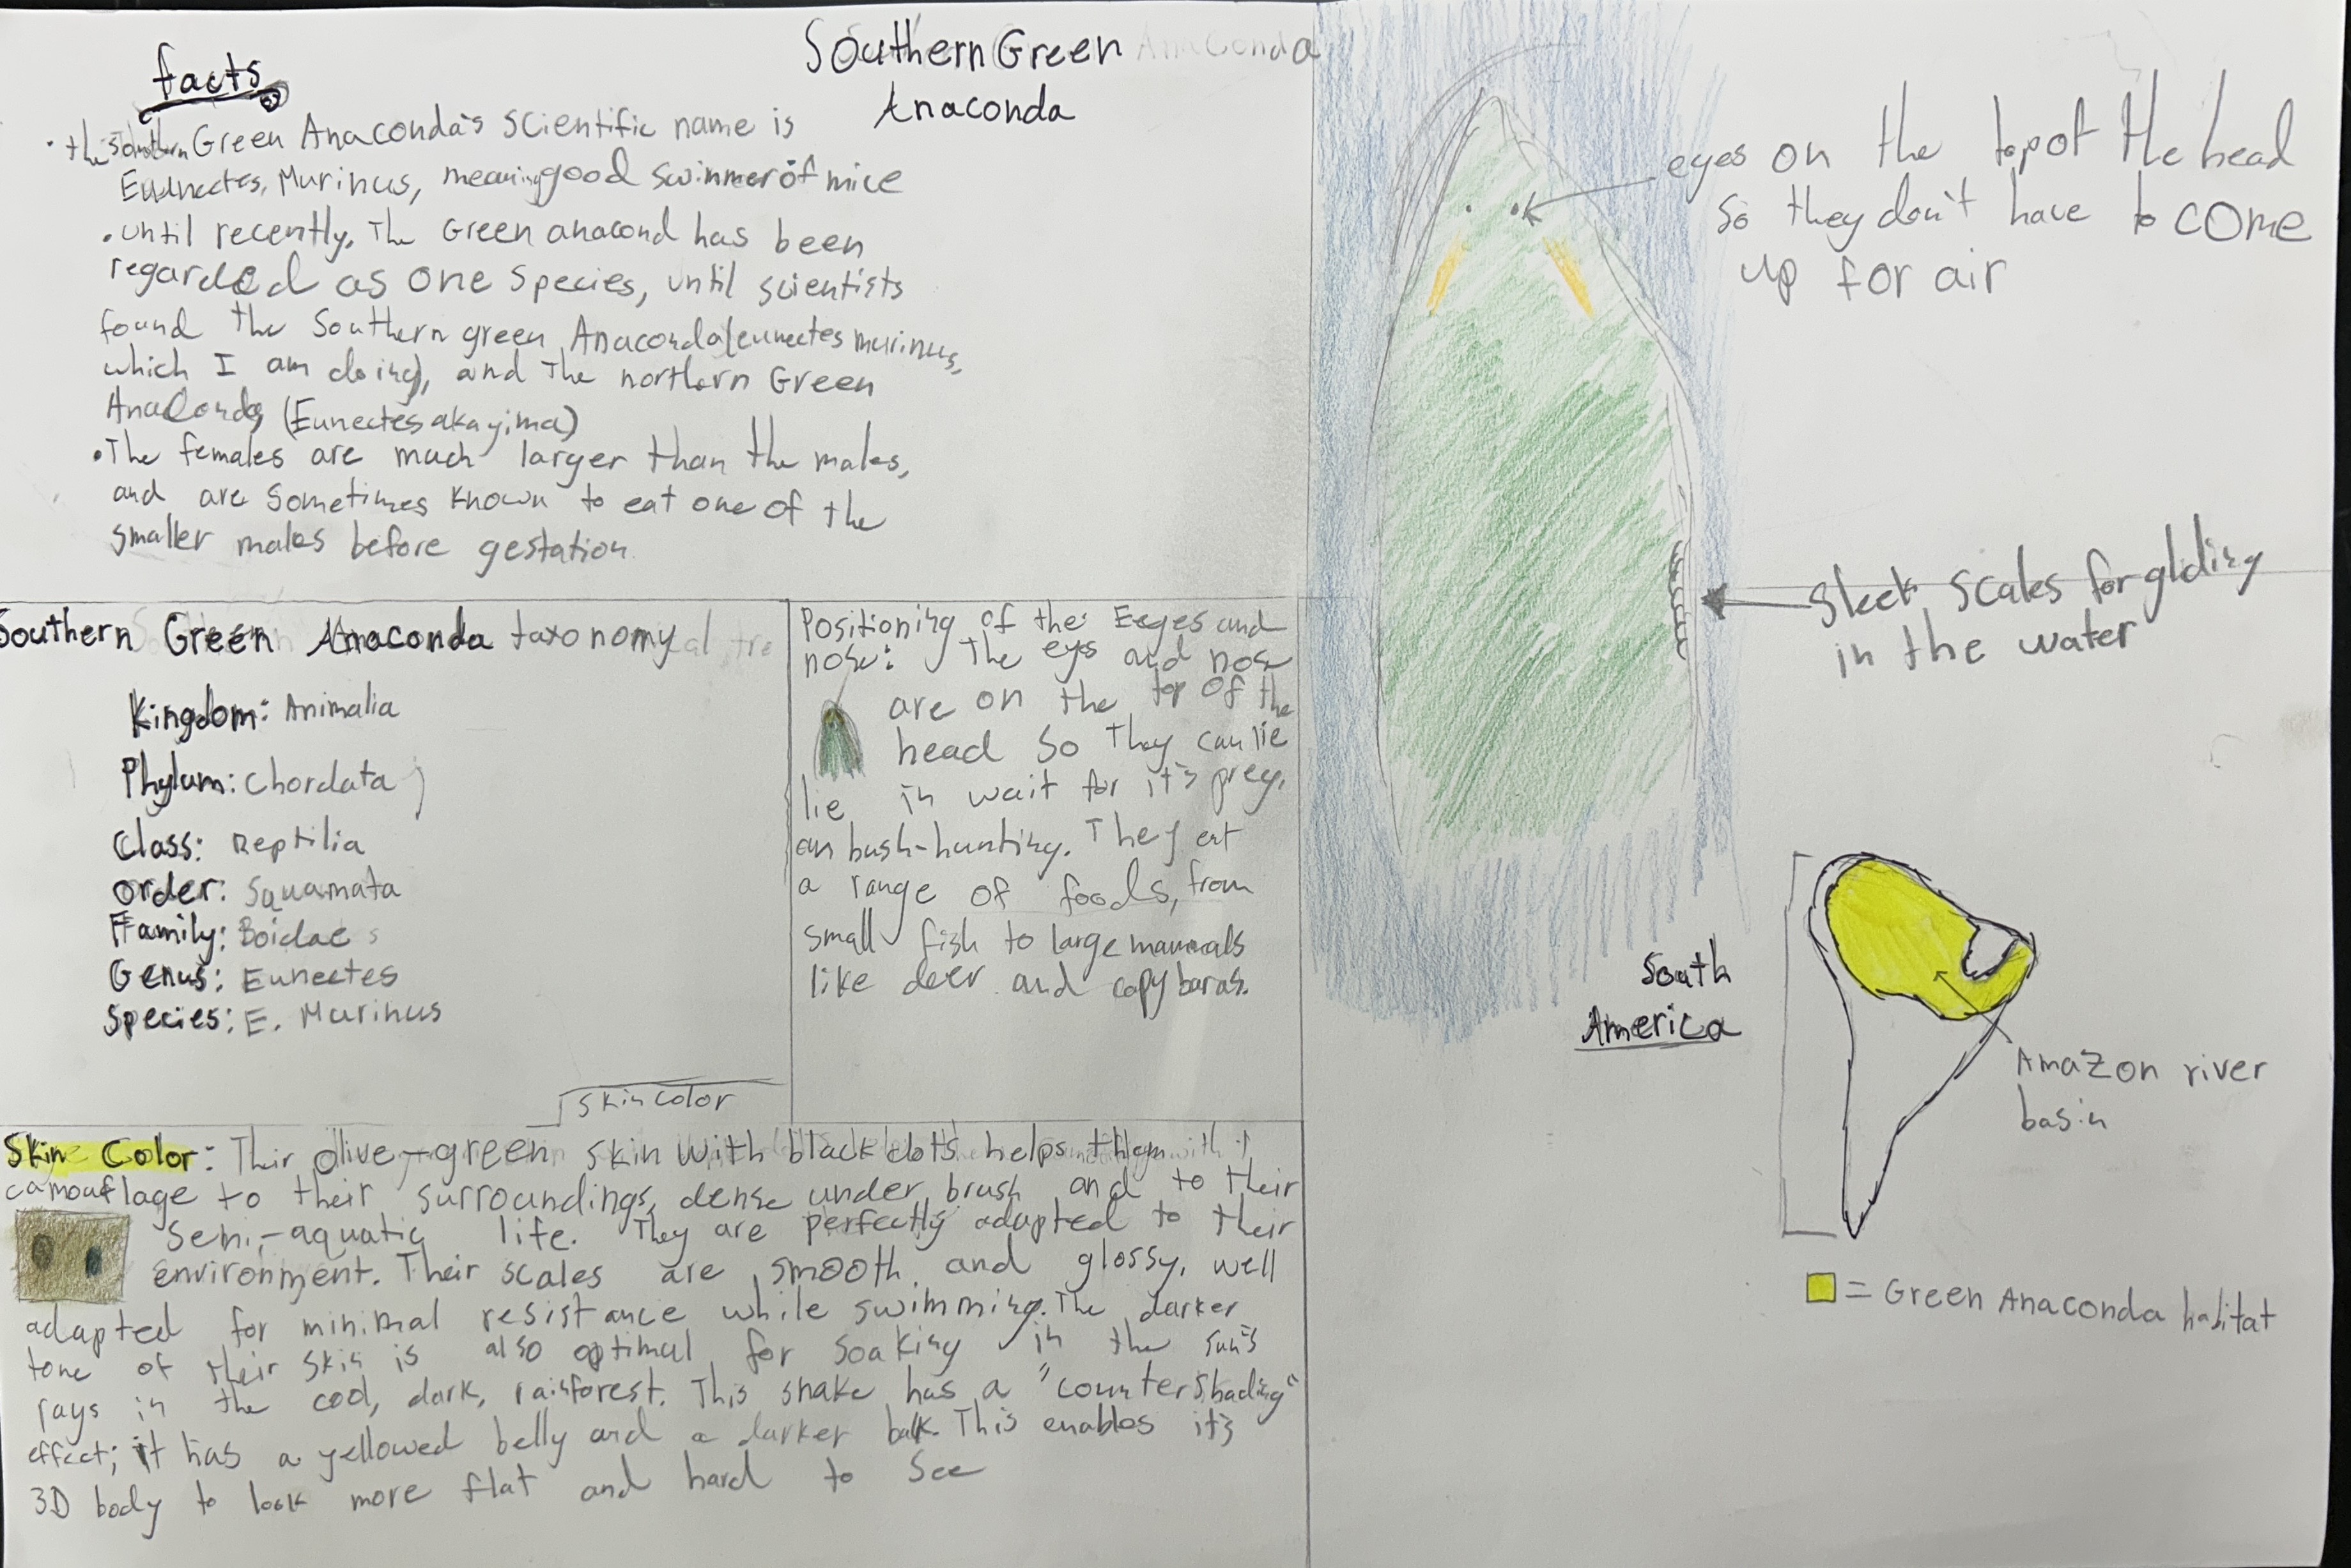 Southern Green Anaconda
Anaconda
facts
• the Southern Green Anaconda's scientific name is
Eunectes, Murinus, meaning good swimmer of mice
• Until recently, The Green anacond has been
regarded as one species, until scientists
found the Southern green Anaconda(eunectes murinus,
which I am doing), and The northern Green
Anaconda, (Eunectes akayima)
• The females are much larger than the males,
and are sometimes known to eat one of the
smaller males before gestation
Southern Green Anaconda taxonomy
Kingdom: Animalia
Phylum: Chordata
Class: Reptilia
Order: Squamata
Family: Boidae
Genus: Eunectes
Species: E. Murinus
skin color
Positioning of the Eeyes and
nose: The eys and nose
are on the top of the
head so they can lie
lie in wait for it's prey,
ambush-hunting. They eat
a range of foods, from
small fish to large mammals
like deer and capybaras.
Skin Color: Their olive-green skin with black dots helps them
camouflage to their surroundings, dense under brush and to their
semi-aquatic life. They are perfectly adapted to their
environment. Their scales are smooth and glossy, well
adapted for minimal resistance while swimming. The darker
tone of their skin is also optimal for soaking in the sun's
rays in the cool, dark, rainforest. This snake has a "countershading"
effect; it has a yellowed belly and a darker back. This enables it's
3D body to look more flat and hard to see
eyes on the top of the head
so they don't have to come
up for air
Sleek scales for gliding
in the water
South
America
Amazon river
basin
= Green Anaconda habitat